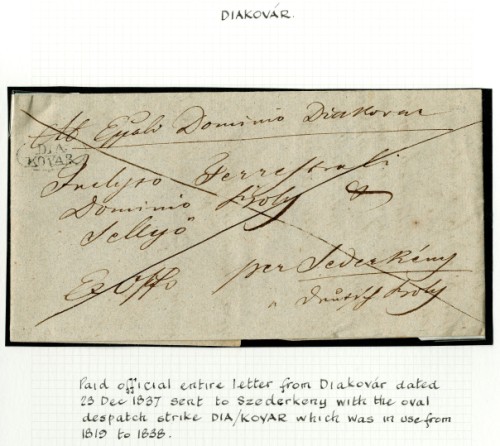 DIAKOVÁR.
Ab Eppali Dominio Diakovar
DIA
KOVAR
Inclyto Terrestrali
Dominio Boly &
Sellyö
Ex Offo per Sederkény
Deutsch Boly
Paid official entire letter from Diakovár dated
23 Dec 1837 sent to Szederkony with the oval
despatch strike DIA/KOVAR which was in use from
1819 to 1838.